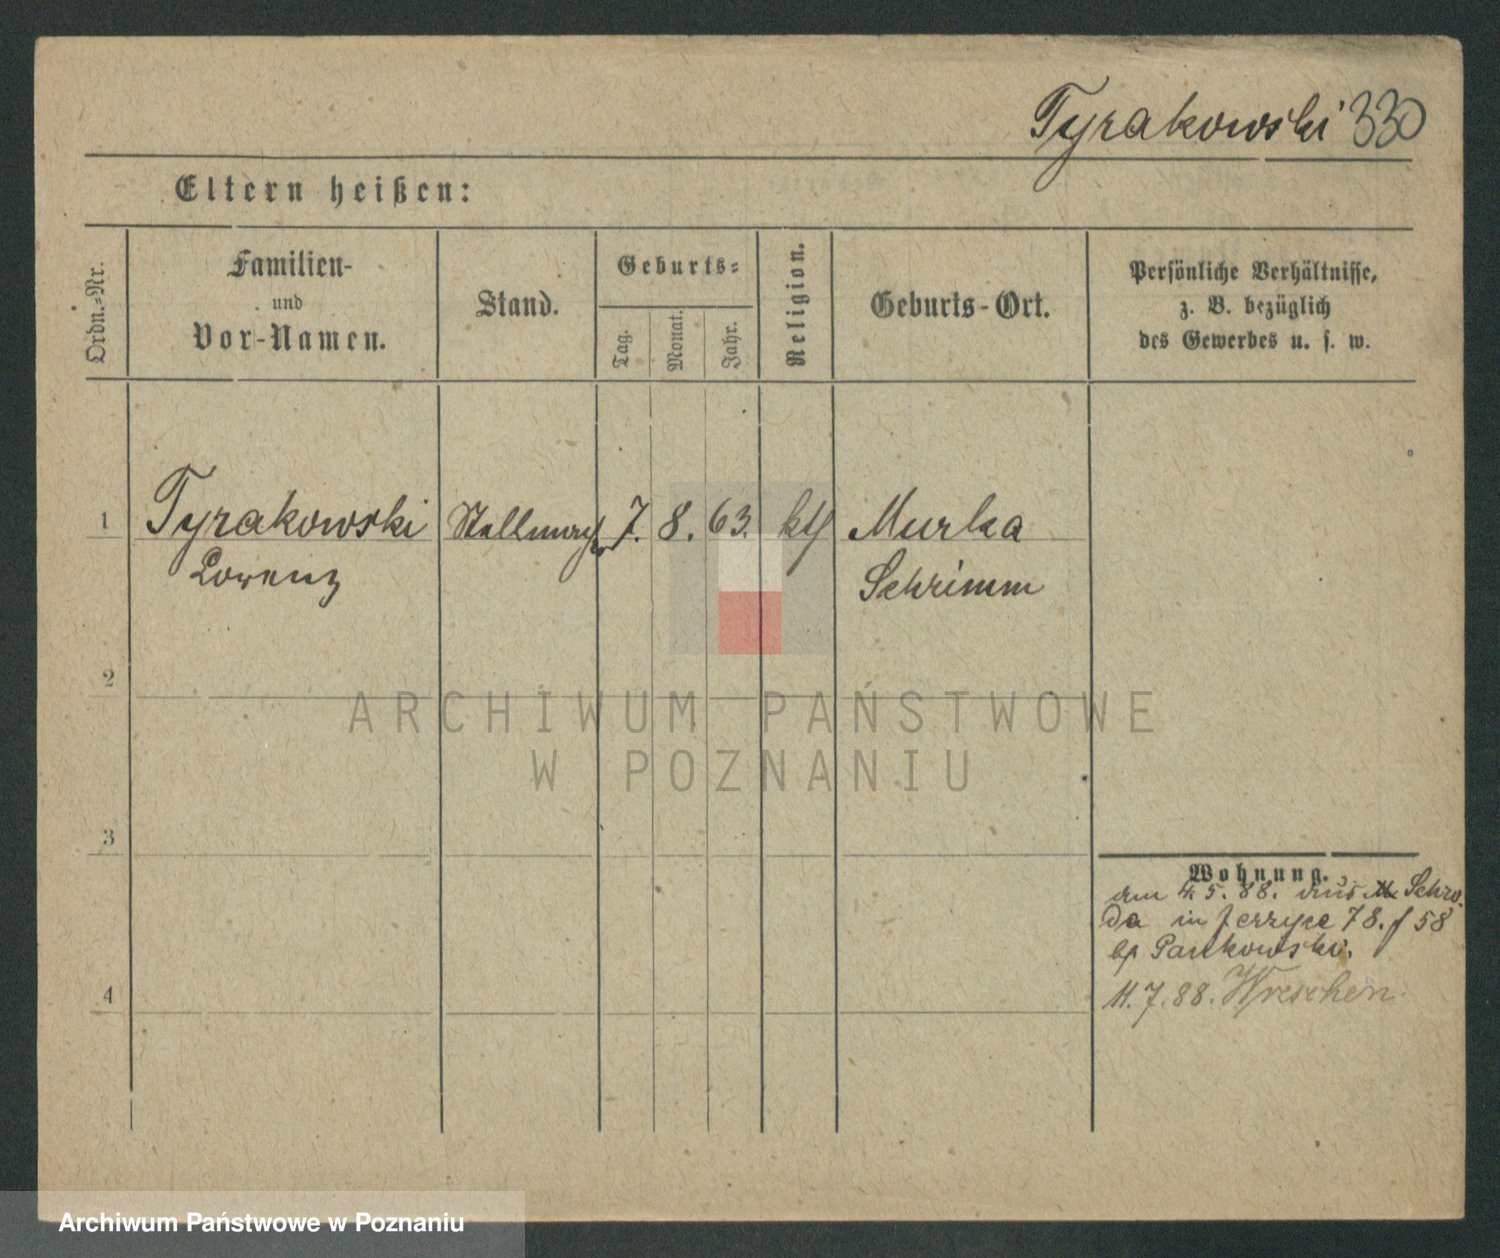 Tyrakowski 330
Eltern heißen:
Ordn.-Nr.
Familien-
und
Vor-Namen.
Stand.
Geburts-
Tag.
Monat.
Jahr.
Religion.
Geburts-Ort.
Persönliche Verhältnisse,
z. B. bezüglich
des Gewerbes u. s. w.
1 Tyrakowski Stellmacher 7. 8. 63. kth Murka
Lorenz Schrimm
2
3
4
Wohnung.
am 4. 5. 88. aus Schro-
da in Jerzyce 78. f 58
bei Pankowski.
11. 7. 88. Wreschen.
ARCHIWUM PAŃSTWOWE
W POZNANIU
Archiwum Państwowe w Poznaniu